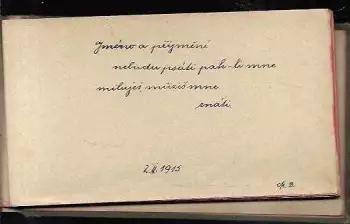 Jméno a příjmení
nebudu psáti pak-li mne
miluješ můžeš mne
znáti.
2.II.1915